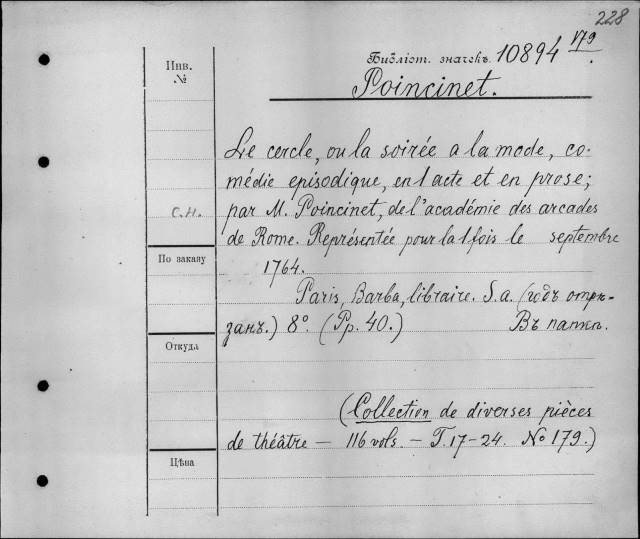 228
Библіот. значекъ 10894 179.
Инв.
№
Poincinet.
Le cercle, ou la soirée a la mode, co-
médie episodique, en 1 acte et en prose;
par M. Poincinet, de l'académie des arcades
с.н.
de Rome. Représentée pour la 1 fois le septembre
По заказу
1764.
Paris, Barba, libraire. S.a. (годъ отрѣ-
занъ.) 8° (Pp. 40.) Въ папкѣ.
Откуда
(Collection de diverses pièces
de théâtre — 116 vols. — T. 17-24. No 179.)
Цѣна